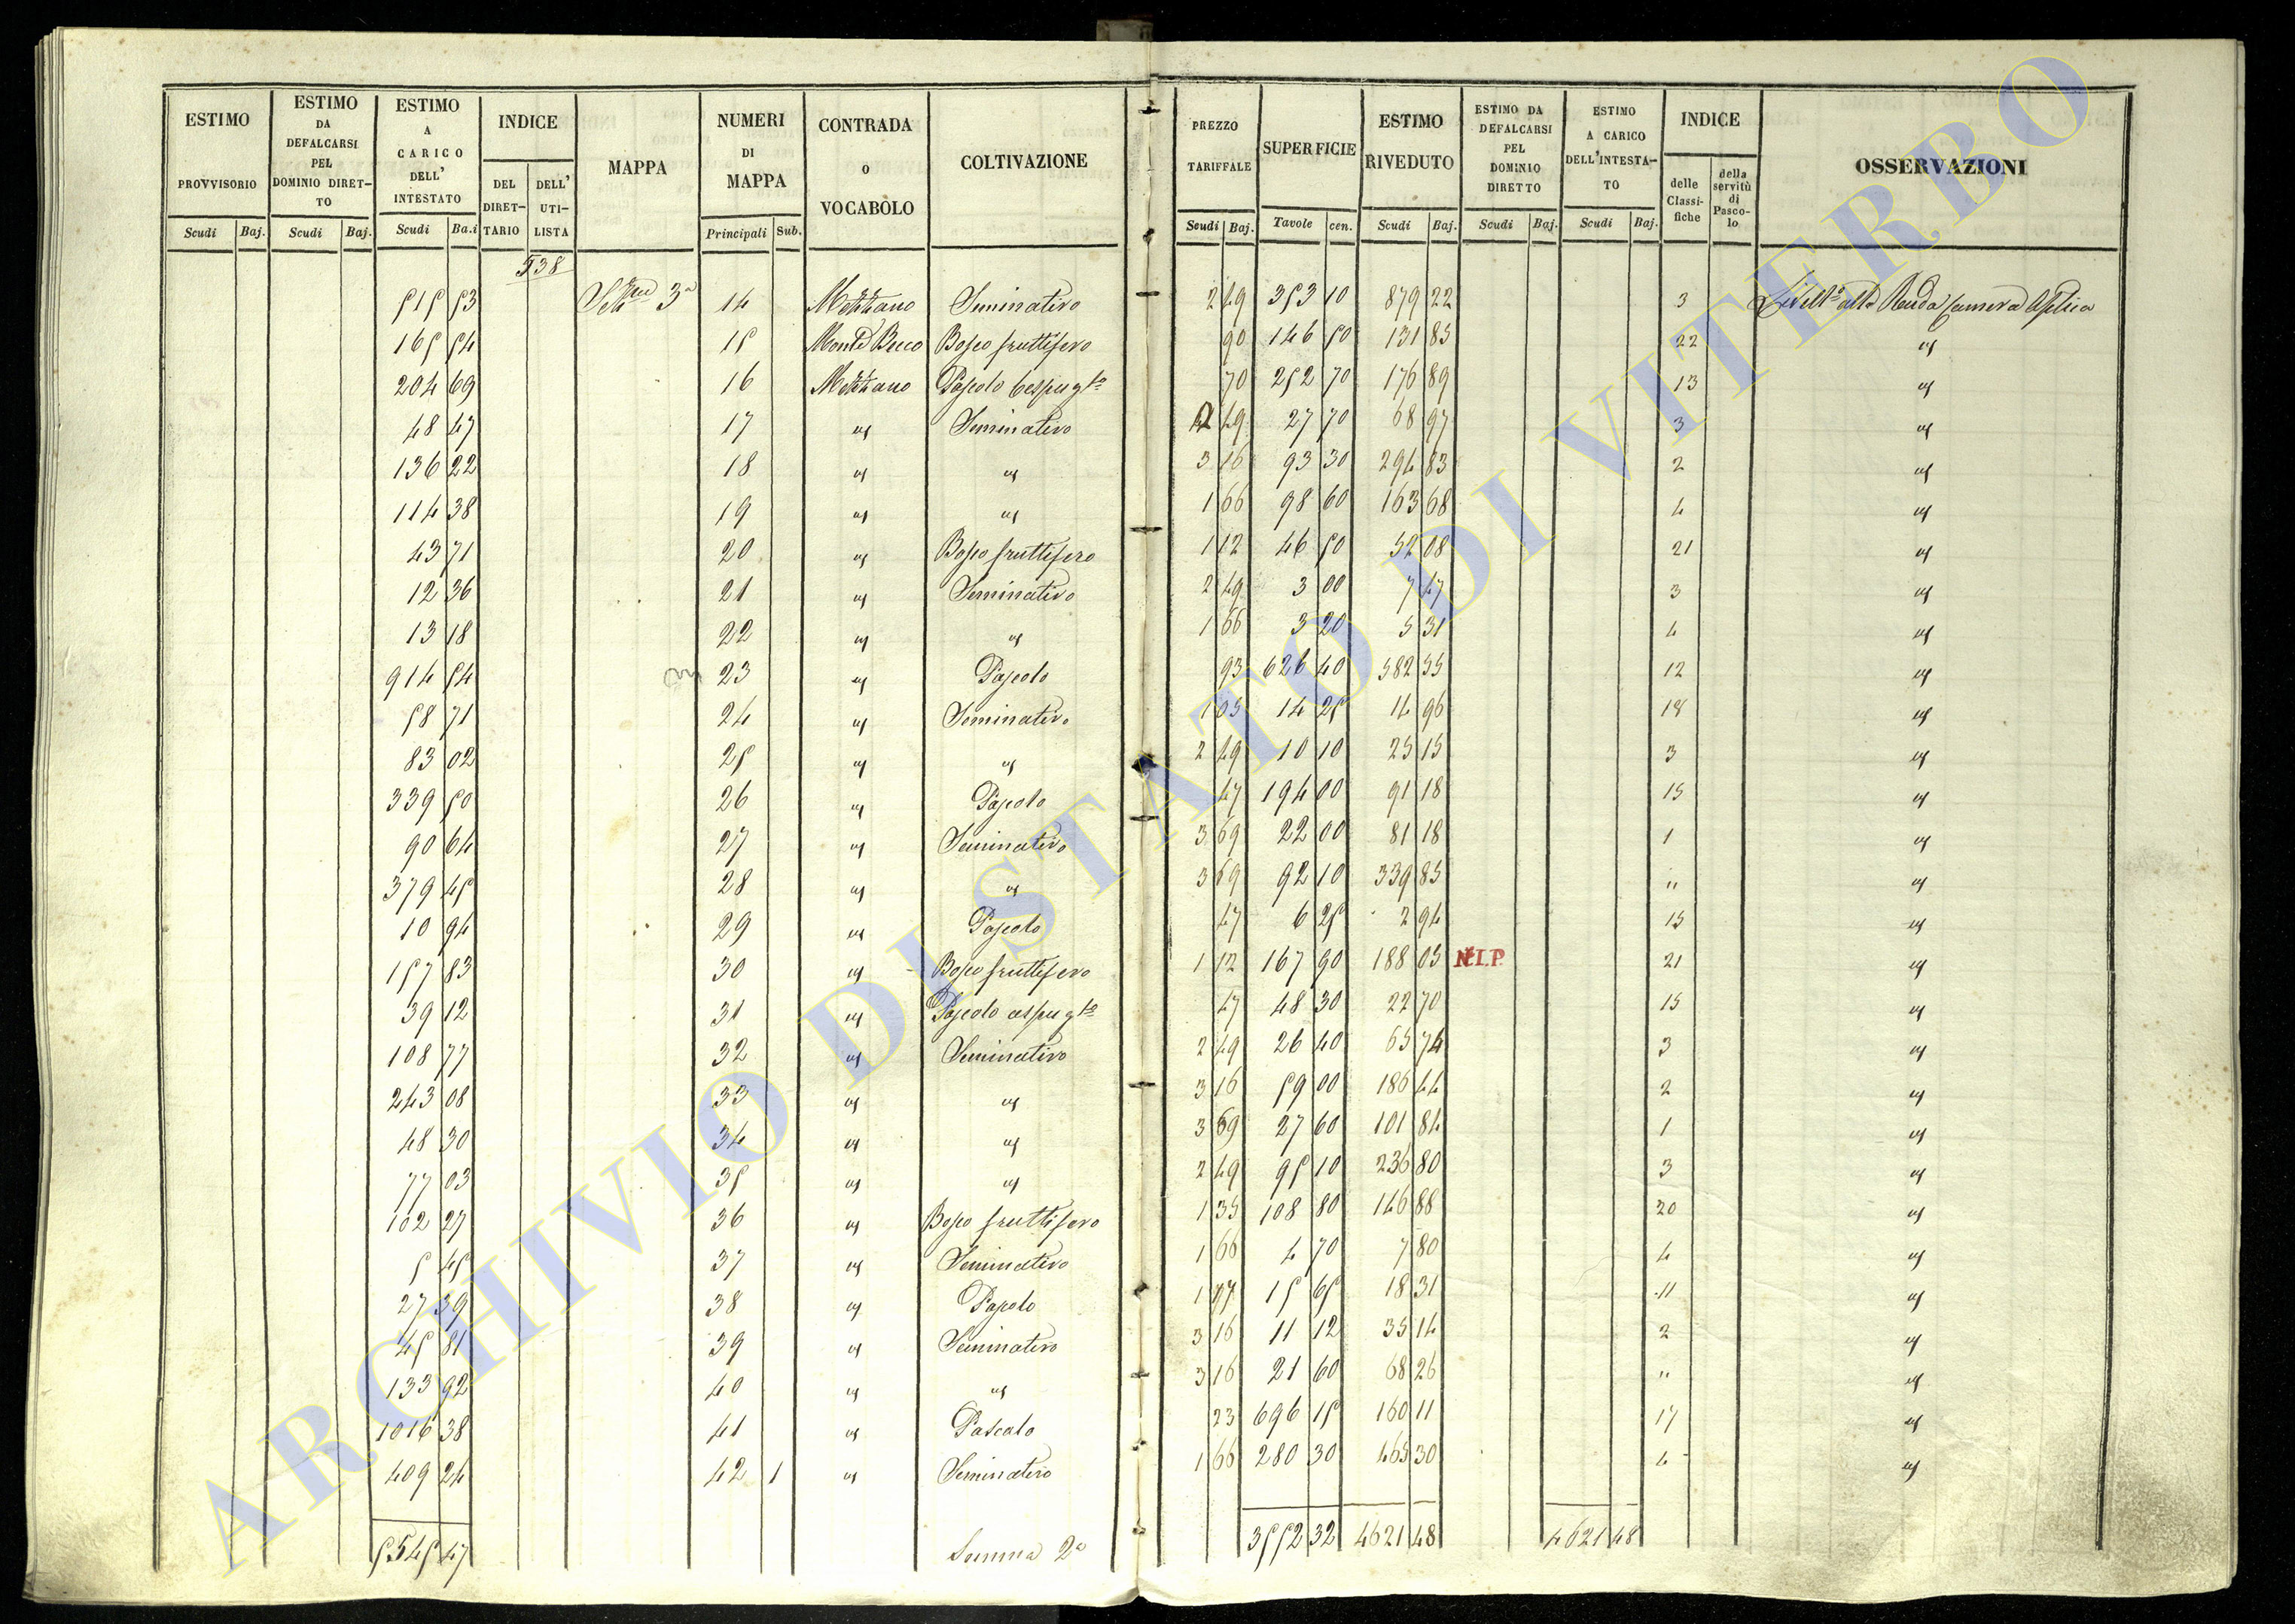 ESTIMO PROVVISORIO Scudi Baj.
ESTIMO DA DEFALCARSI PEL DOMINIO DIRETTO Scudi Baj.
ESTIMO A CARICO DELL' INTESTATO Scudi Ba.i
INDICE DEL DIRETTARIO DELL' UTILISTA
MAPPA
NUMERI DI MAPPA Principali Sub.
CONTRADA O VOCABOLO
COLTIVAZIONE
PREZZO TARIFFALE Scudi Baj.
SUPERFICIE Tavole cen.
ESTIMO RIVEDUTO Scudi Baj.
ESTIMO DA DEFALCARSI PEL DOMINIO DIRETTO Scudi Baj.
ESTIMO A CARICO DELL'INTESTATO Scudi Baj.
INDICE delle Classifiche della servitù di Pascolo
OSSERVAZIONI
538
515 53 3ª 14 Mezzano Seminativo 2 49 353 10 879 22 3 alla Camera
165 54 15 Bosco fruttifero 90 146 50 131 85 22 "
204 69 16 Mezzano Pascolo cespugto 70 252 70 176 89 13 "
48 47 17 " Seminativo 2 49 27 70 68 97 3 "
136 22 18 " " 3 16 93 30 294 83 2 "
114 38 19 " " 1 66 98 60 163 68 4 "
43 71 20 " Bosco fruttifero 1 12 46 50 52 08 21 "
12 36 21 " Seminativo 2 49 3 00 7 47 3 "
13 18 22 " " 1 66 3 20 5 31 4 "
914 54 23 " Pascolo 93 626 40 582 55 12 "
58 71 24 " Seminativo 1 05 14 25 14 96 "
83 02 25 " " 2 49 10 10 25 15 3 "
339 50 26 " Pascolo 47 194 00 91 18 15 "
90 64 27 " Seminativo 3 69 22 00 81 18 1 "
379 45 28 " " 3 69 92 10 339 85 " "
10 94 29 " Pascolo 47 6 25 2 94 15 "
157 83 30 " Bosco fruttifero 1 12 167 90 188 05 N.I.P. 21 "
39 12 31 " Pascolo cespugto 47 48 30 22 70 15 "
108 77 32 " Seminativo 2 49 26 40 65 74 3 "
243 08 33 " " 3 16 59 00 186 44 2 "
48 30 34 " " 3 69 27 60 101 84 1 "
77 03 35 " " 2 49 95 10 236 80 3 "
102 27 36 " Bosco fruttifero 1 35 108 80 146 88 20 "
5 45 37 " Seminativo 1 66 4 70 7 80 4 "
27 39 38 " Pascolo 1 17 15 65 18 31 11 "
45 81 39 " Seminativo 3 16 11 12 35 14 2 "
133 92 40 " " 3 16 21 60 68 26 " "
1016 38 41 " Pascolo 23 696 15 160 11 17 "
409 24 42 1 " Seminativo 1 66 280 30 465 30 4 "
5545 47 Somma 2ª 3552 32 4621 48 4621 48
ARCHIVIO DI STATO DI VITERBO